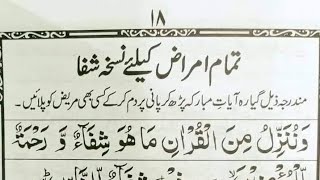 ۱۸
تمام امراض کیلئے نسخہ شفا
مندرجہ ذیل گیارہ آیاتِ مبارکہ پڑھ کر پانی پر دم کر کے کسی بھی مریض کو پلائیں۔
وَنُنَزِّلُ مِنَ الْقُرْاٰنِ مَا هُوَ شِفَآءٌ وَّ رَحْمَةٌ